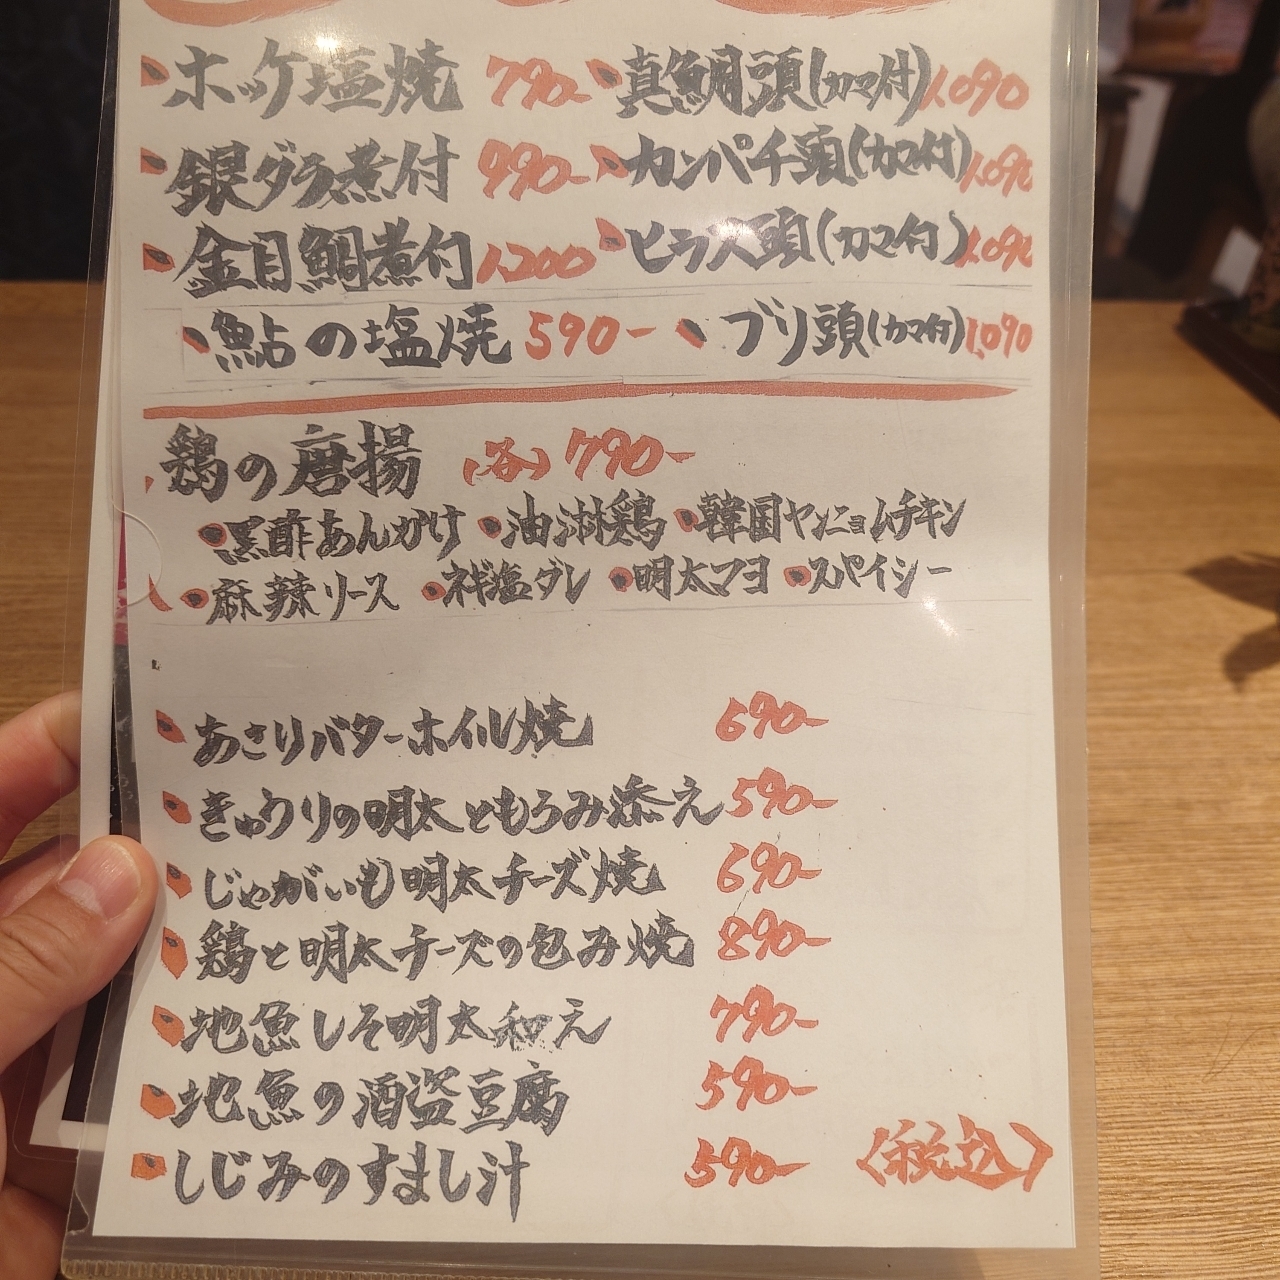 ホッケ塩焼 790- 真鯛頭(カマ付) 1,090
銀ダラ煮付 990- カンパチ頭(カマ付) 1,090
金目鯛煮付 1,200 ヒラス頭(カマ付) 1,090
鮎の塩焼 590- ブリ頭(カマ付) 1,090
鶏の唐揚 (各) 790-
黒酢あんかけ 油淋鶏 韓国ヤンニョムチキン
麻辣ソース ネギ塩ダレ 明太マヨ スパイシー
あさりバターホイル焼 690-
きゅうりの明太ともろみ添え 590-
じゃがいも明太チーズ焼 690-
鶏と明太チーズの包み焼 890-
地魚しそ明太和え 790-
地魚の酒盗豆腐 590-
しじみのすまし汁 590- 〈税込〉